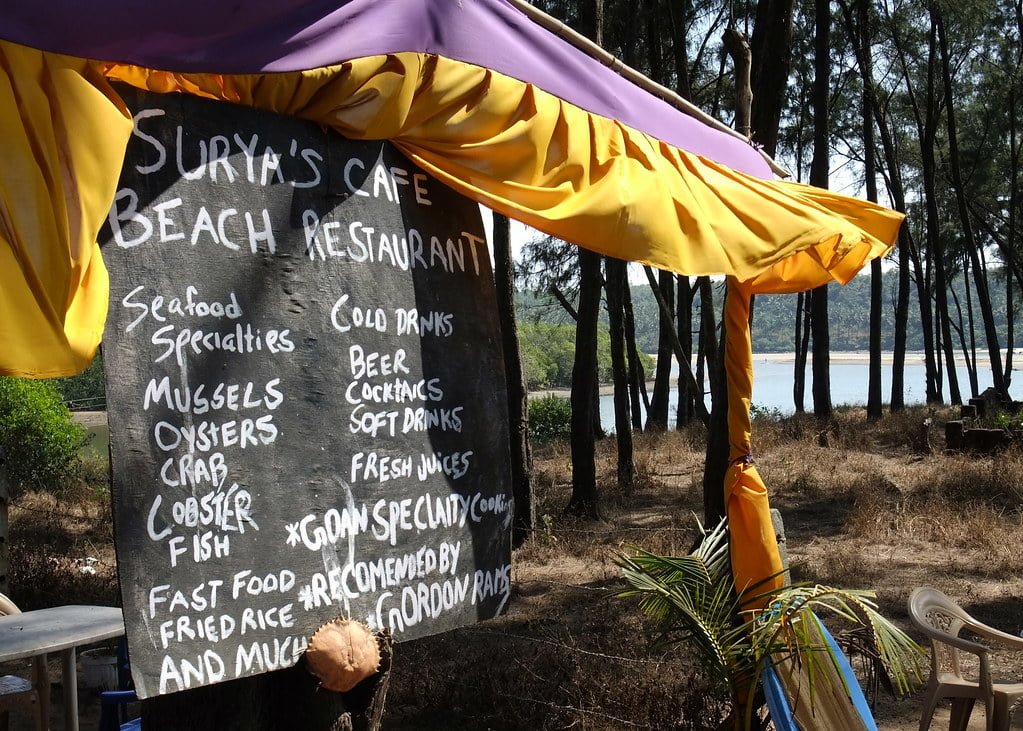 SURYA'S CAFE
BEACH RESTAURANT
Seafood
Specialties
MUSSELS
OYSTERS
CRAB
LOBSTER
FISH
FAST FOOD
FRIED RICE
AND MUCH
COLD DRNKS
BEER
COCKTAILS
SOFT DRINKS
FRESH JUICES
*GOAN SPECLAITY Cooking
*RECOMENDED BY
*GORDON RAMS